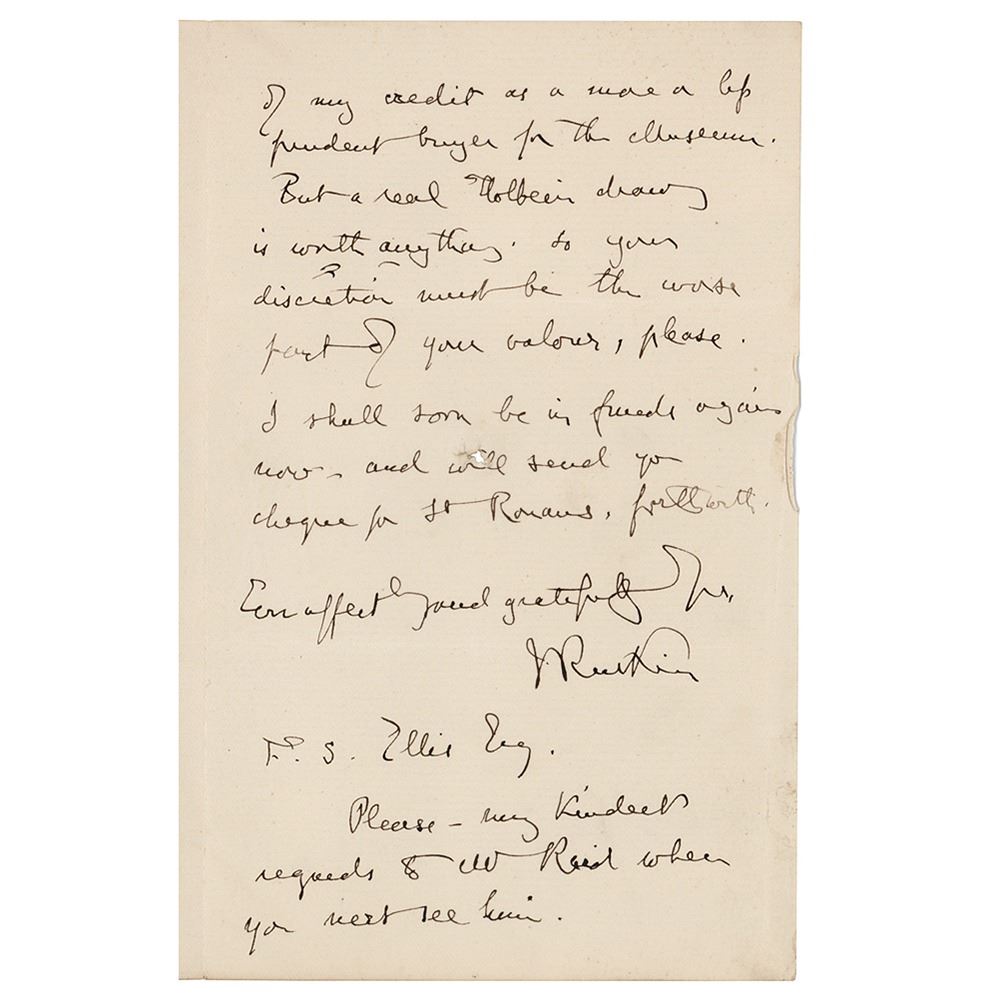 of my credit as a more or less
prudent buyer for the Museum.
But a real Holbein drawg
is worth anything. So your
discretion must be the worse
part of your valour, please.
I shall soon be in funds again
now - and will send yo
cheque for St Ronans, forthwith.
Ever affectly and gratefully Yrs,
J Ruskin
F. S. Ellis Esq.
Please - my kindest
regards to Mr Reid when
you next see him.